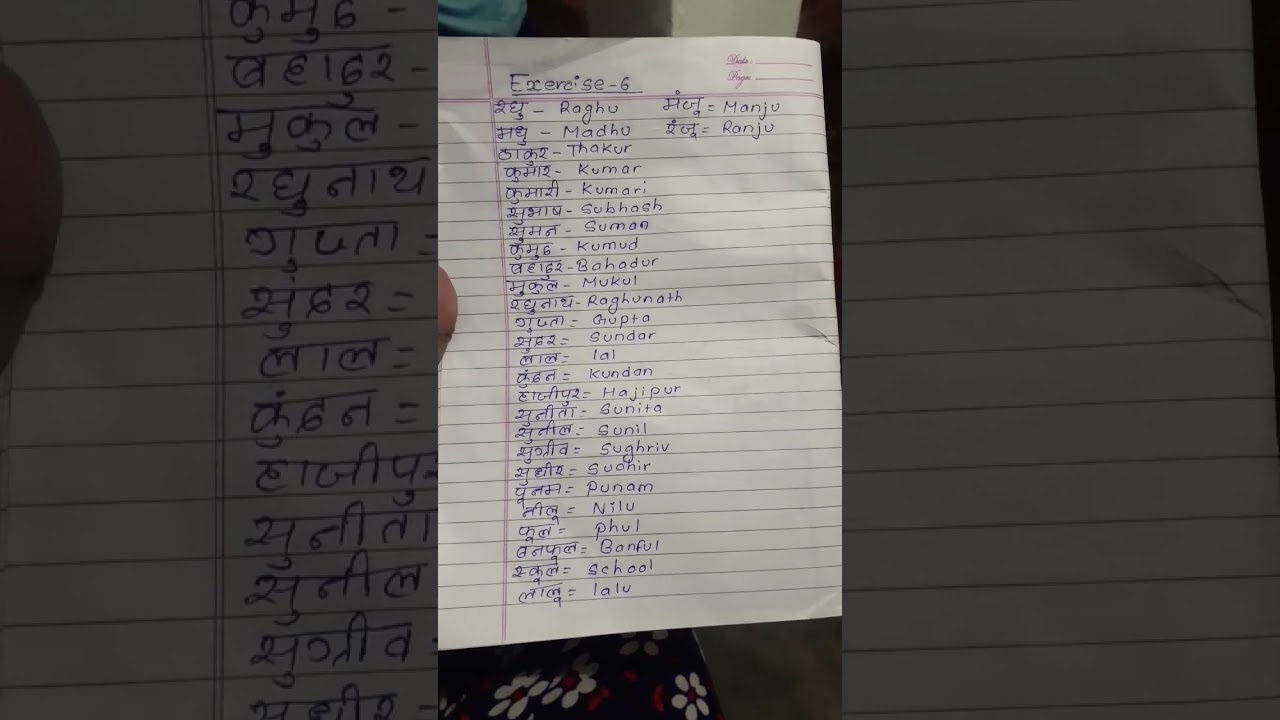 कुमुद -
बहादुर -
मुकुल -
रघुनाथ
गुप्ता =
सुंदर =
लाल =
कुंदन =
हाजीपुर
सुनीता
सुनील
सुग्रीव
सुधीर -
Date:
Page:
Exercise-6
रघु - Raghu मंजू = Manju
मधु - Madhu रंजू = Ranju
ठाकुर - Thakur
कुमार - Kumar
कुमारी - Kumari
सुभाष - Subhash
सुमन - Suman
कुमुद - Kumud
बहादुर - Bahadur
मुकुल - Mukul
रघुनाथ - Raghunath
गुप्ता = Gupta
सुंदर = Sundar
लाल = lal
कुंदन = Kundan
हाजीपुर = Hajipur
सुनीता = Sunita
सुनील = Sunil
सुग्रीव = Sughriv
सुधीर = Sudhir
पूनम = Punam
नीलू = Nilu
फूल = phul
बनफूल = Banful
स्कूल = School
लालू = lalu